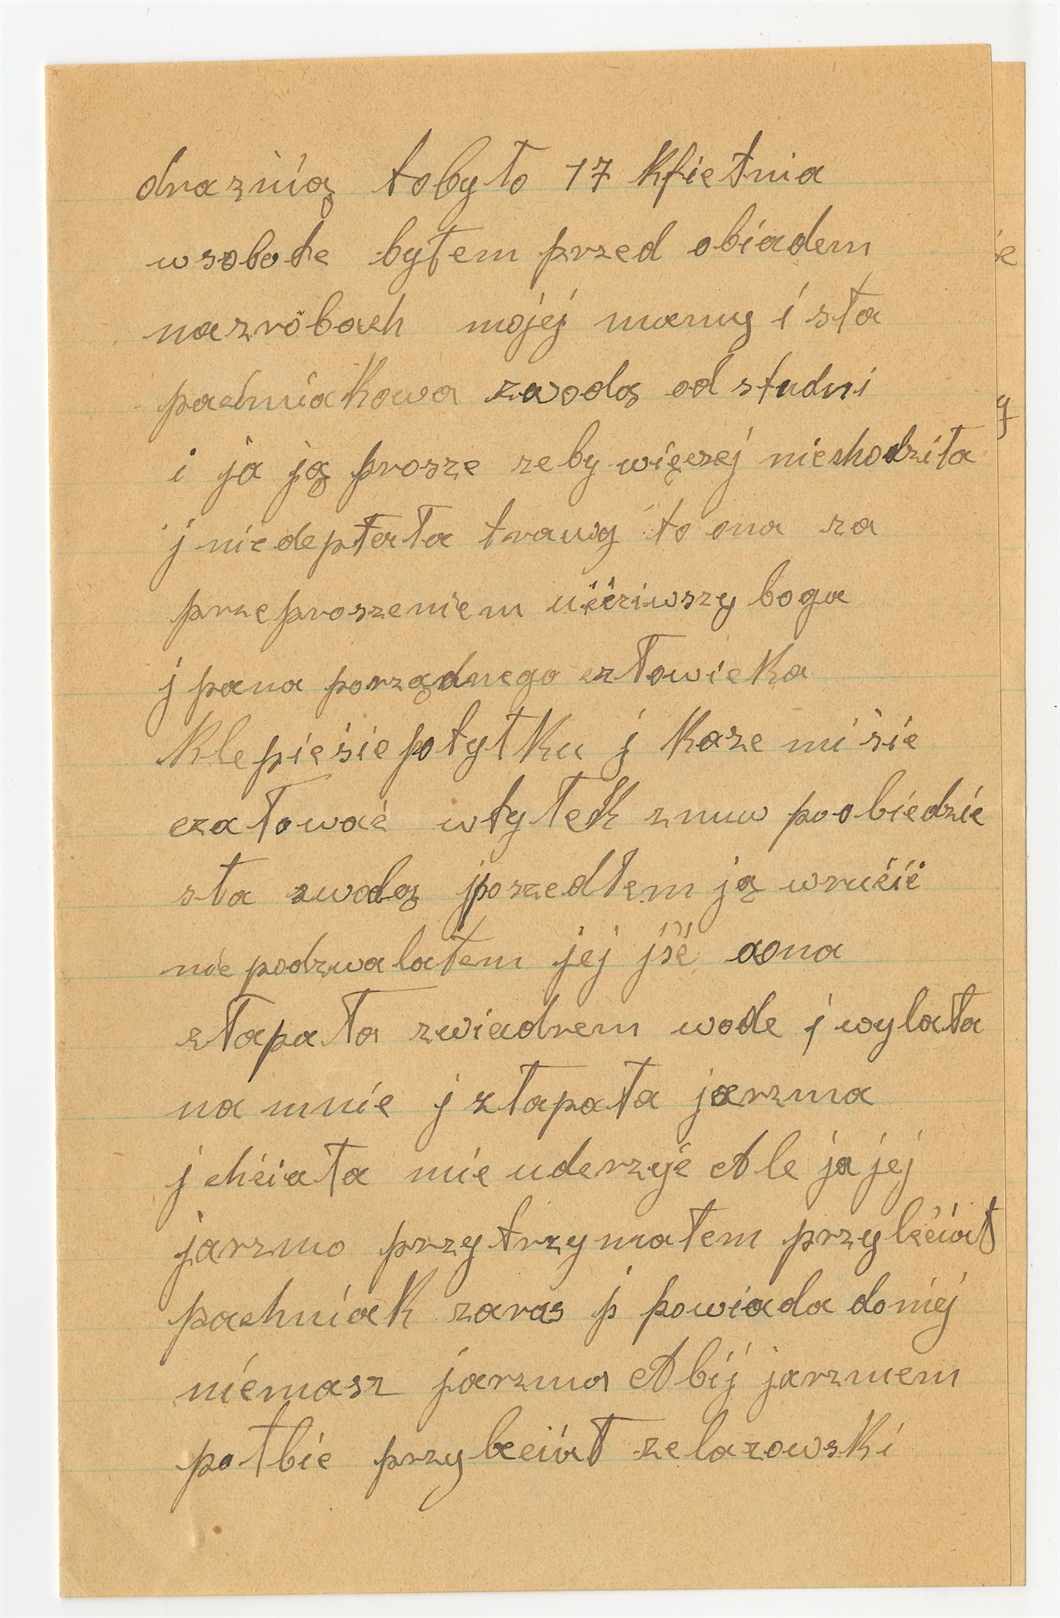 drażnią tobyło 17 Kfietnia
wsobote byłem przed obiadem
nazróbach mojej mamy i sła
pachniakowa zwodą od studni
i ja ją prosze zeby więcej niechodziła
j niedeptała trawy to ona za
przeproszeniem uććziwszy boga
j pana porządnego człowieka
Klepiesie potyłku j Kaze mi sie
czałować wtyłek znuw poobiedzie
sła zwodą jposzedłem ją wrućić
nie podzwalałem jej jść aona
złapała zwiadrem wode j wylała
na mnie j złapała jarzma
j chćiała mie uderzyć Ale ja jej
jarzmo przytrzymałem przylećiał
pachniak zaras j powiada doniej
niémasz jarzma A bij jarzmem
połbie przylećiał zelazowski